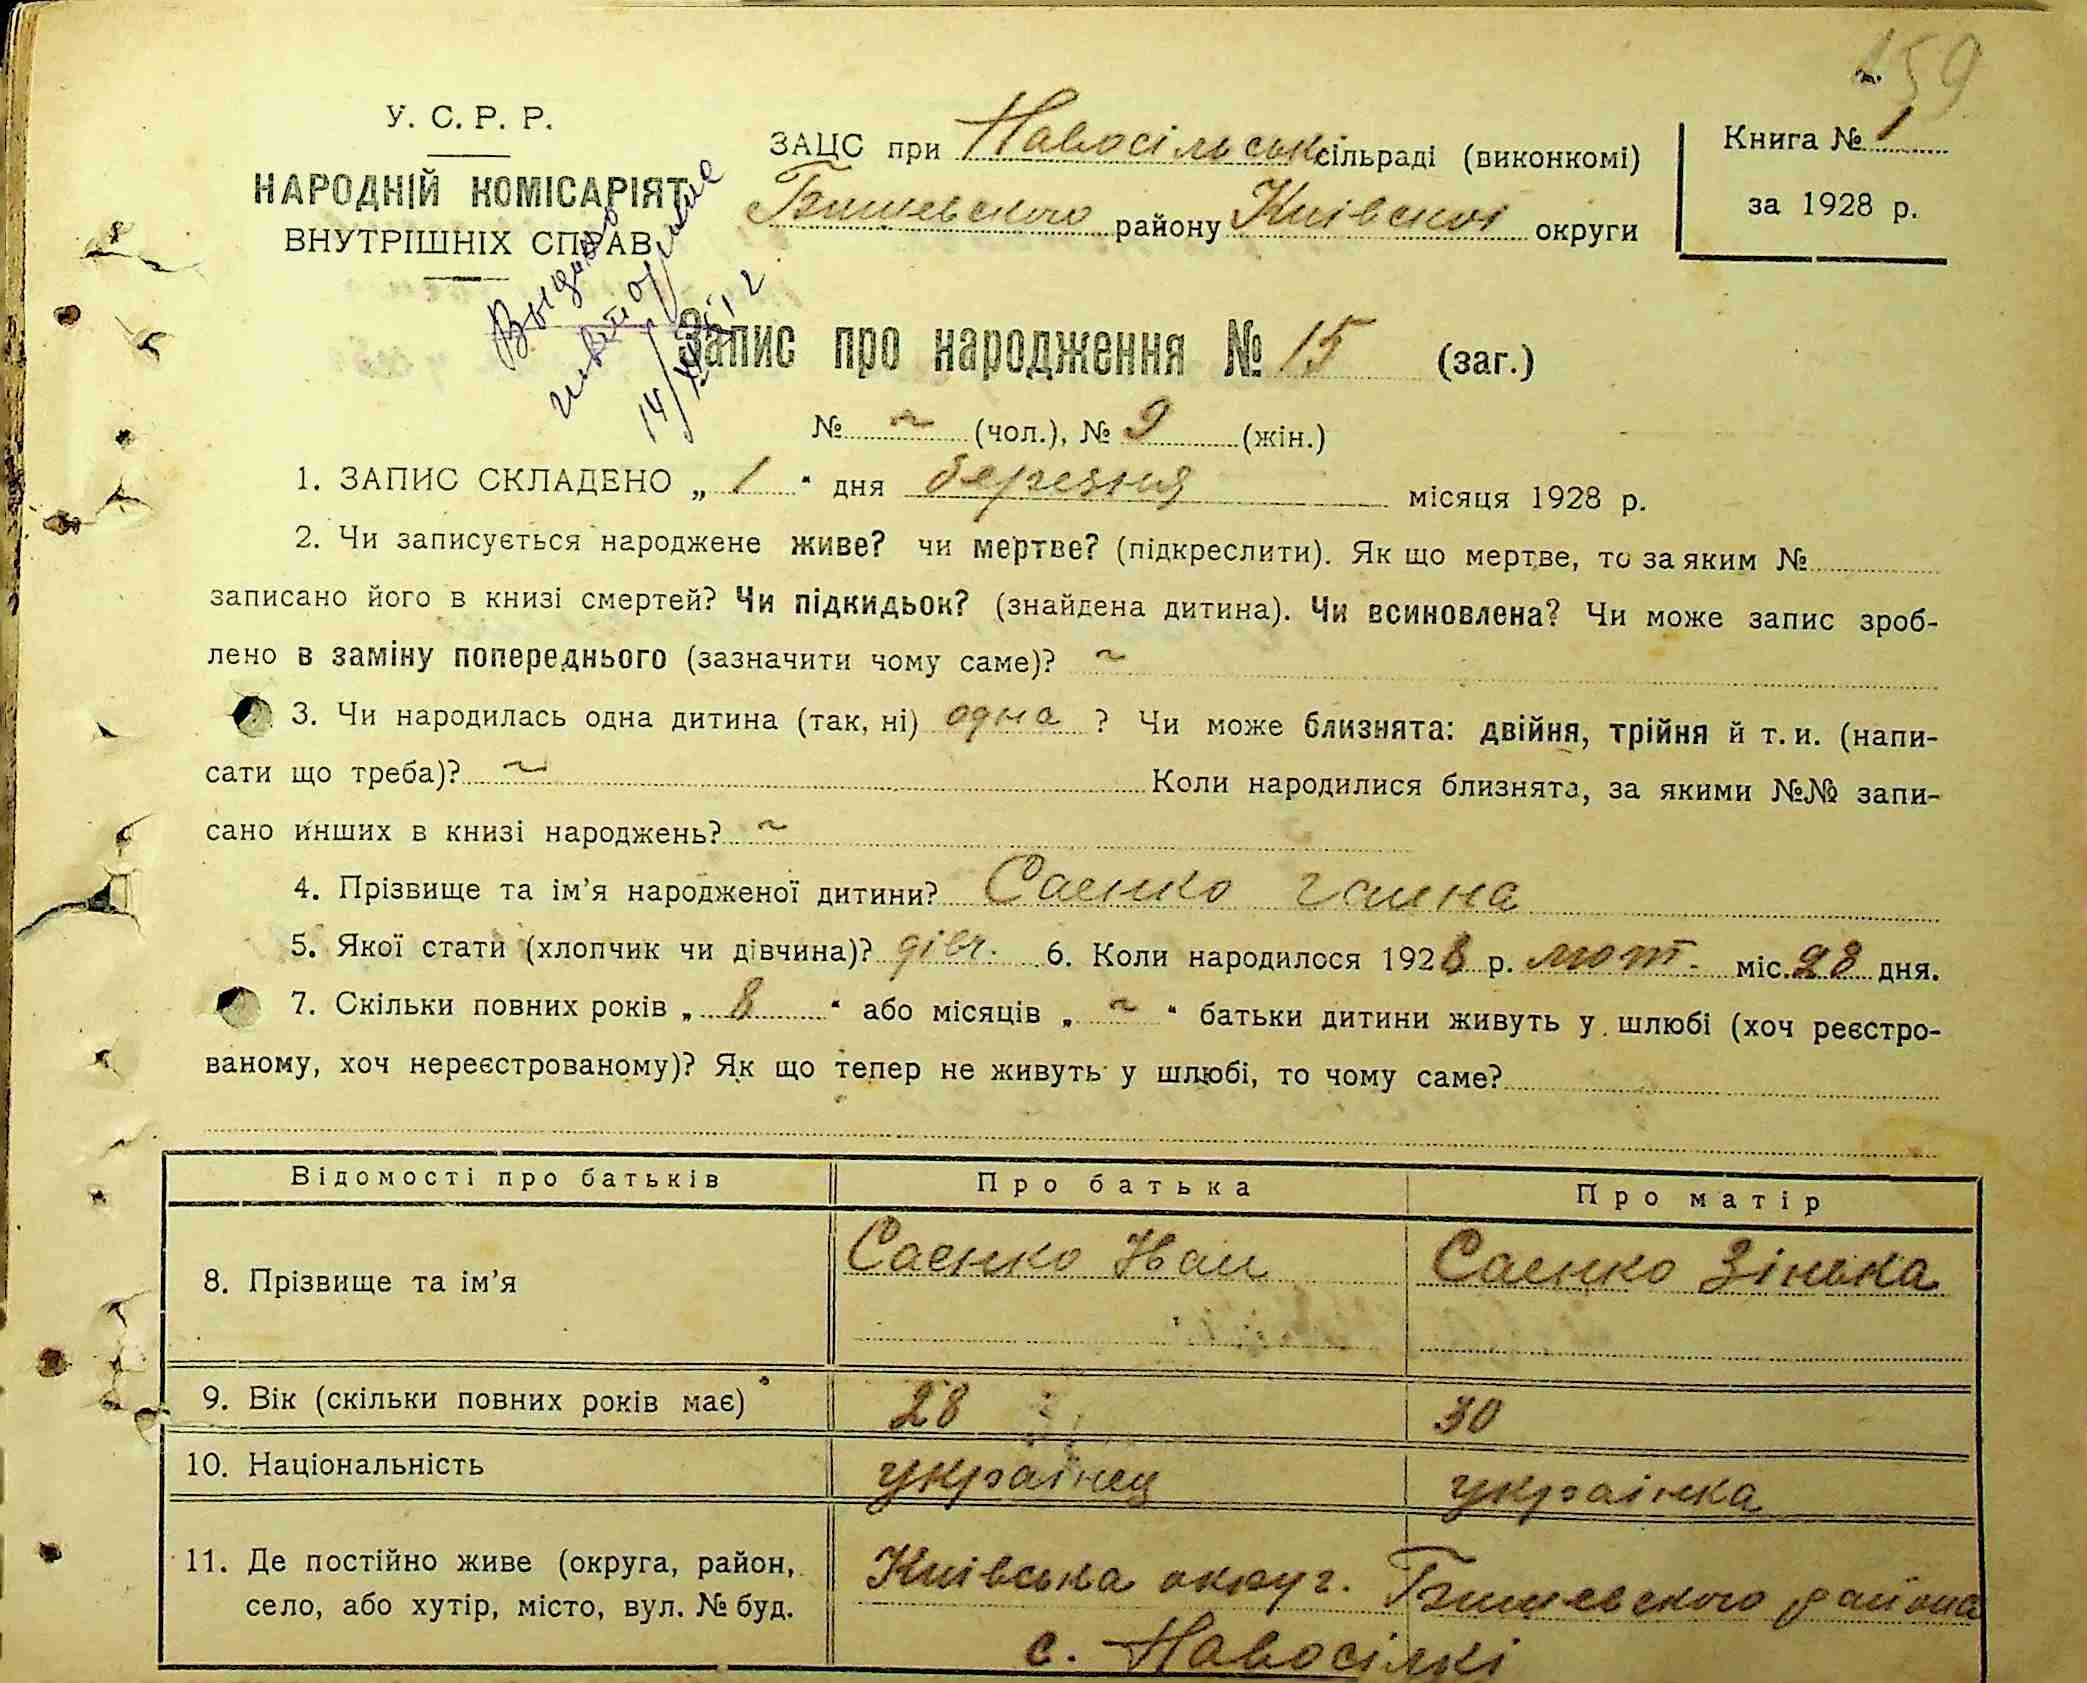 159
У. С. Р. Р.
НАРОДНІЙ КОМІСАРІЯТ
ВНУТРІШНІХ СПРАВ
ЗАЦС при Навосільськ сільраді (виконкомі)
Бишевского району Київскої округи
Книга № 1
за 1928 р.
Выдано
14/XII
Запис про народження № 15 (заг.)
№ ~ (чол.), № 9 (жін.)
1. ЗАПИС СКЛАДЕНО „ 1 “ дня березня місяця 1928 р.
2. Чи записується народжене живе? чи мертве? (підкреслити). Як що мертве, то за яким №
записано його в книзі смертей? Чи підкидьок? (знайдена дитина). Чи всиновлена? Чи може запис зроб-
лено в заміну попереднього (зазначити чому саме)? ~
3. Чи народилась одна дитина (так, ні) одна ? Чи може близнята: двійня, трійня й т. и. (напи-
сати що треба)? ~ Коли народилися близнята, за якими №№ запи-
сано инших в книзі народжень? ~
4. Прізвище та ім’я народженої дитини? Саенко Ганна
5. Якої стати (хлопчик чи дівчина)? дівч. 6. Коли народилося 1928 р. лют. міс. 28 дня.
7. Скільки повних років „ 8 “ або місяців „ ~ “ батьки дитини живуть у шлюбі (хоч реєстро-
ваному, хоч нереєстрованому)? Як що тепер не живуть у шлюбі, то чому саме?
Відомості про батьків Про батька Про матір
8. Прізвище та ім’я Саенко Иван Саенко Зінька
9. Вік (скільки повних років має) 28 30
10. Національність українец українка
11. Де постійно живе (округа, район, Київська округ. Бишевского района
село, або хутір, місто, вул. № буд. с. Навосілкі